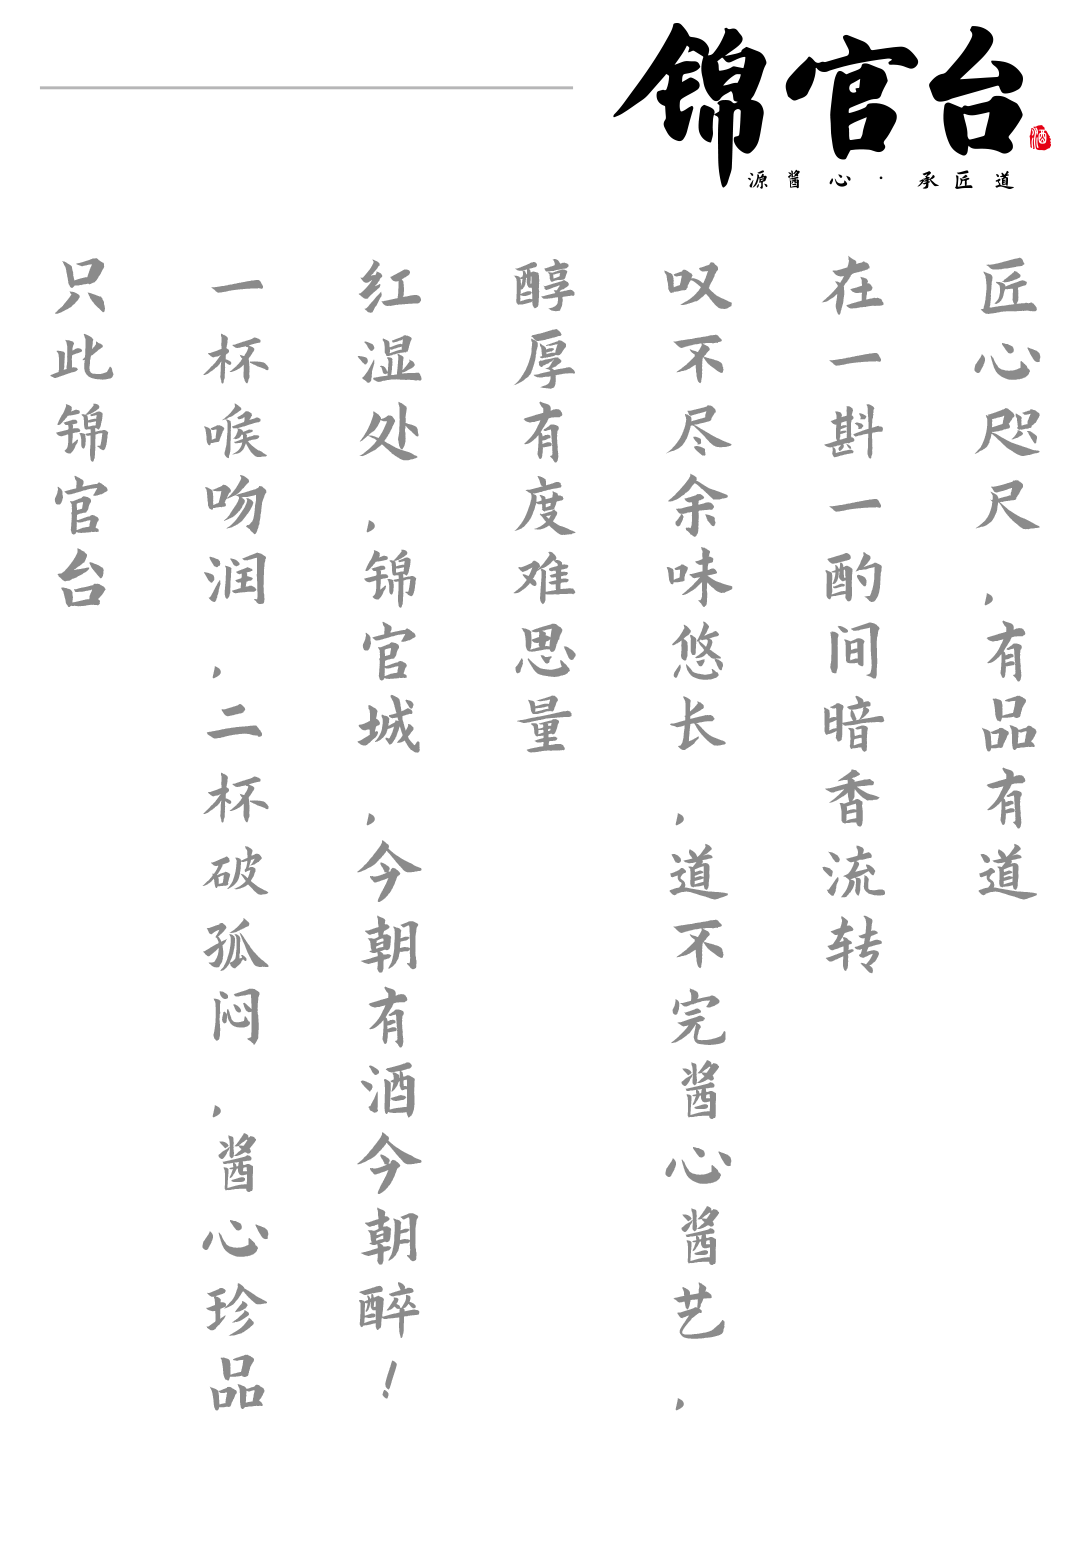 锦官台
酒
源酱心·承匠道
匠心咫尺，有品有道
在一斟一酌间暗香流转
叹不尽余味悠长，道不完酱心酱艺，
醇厚有度难思量
红湿处，锦官城，今朝有酒今朝醉！
一杯喉吻润，二杯破孤闷，酱心珍品
只此锦官台